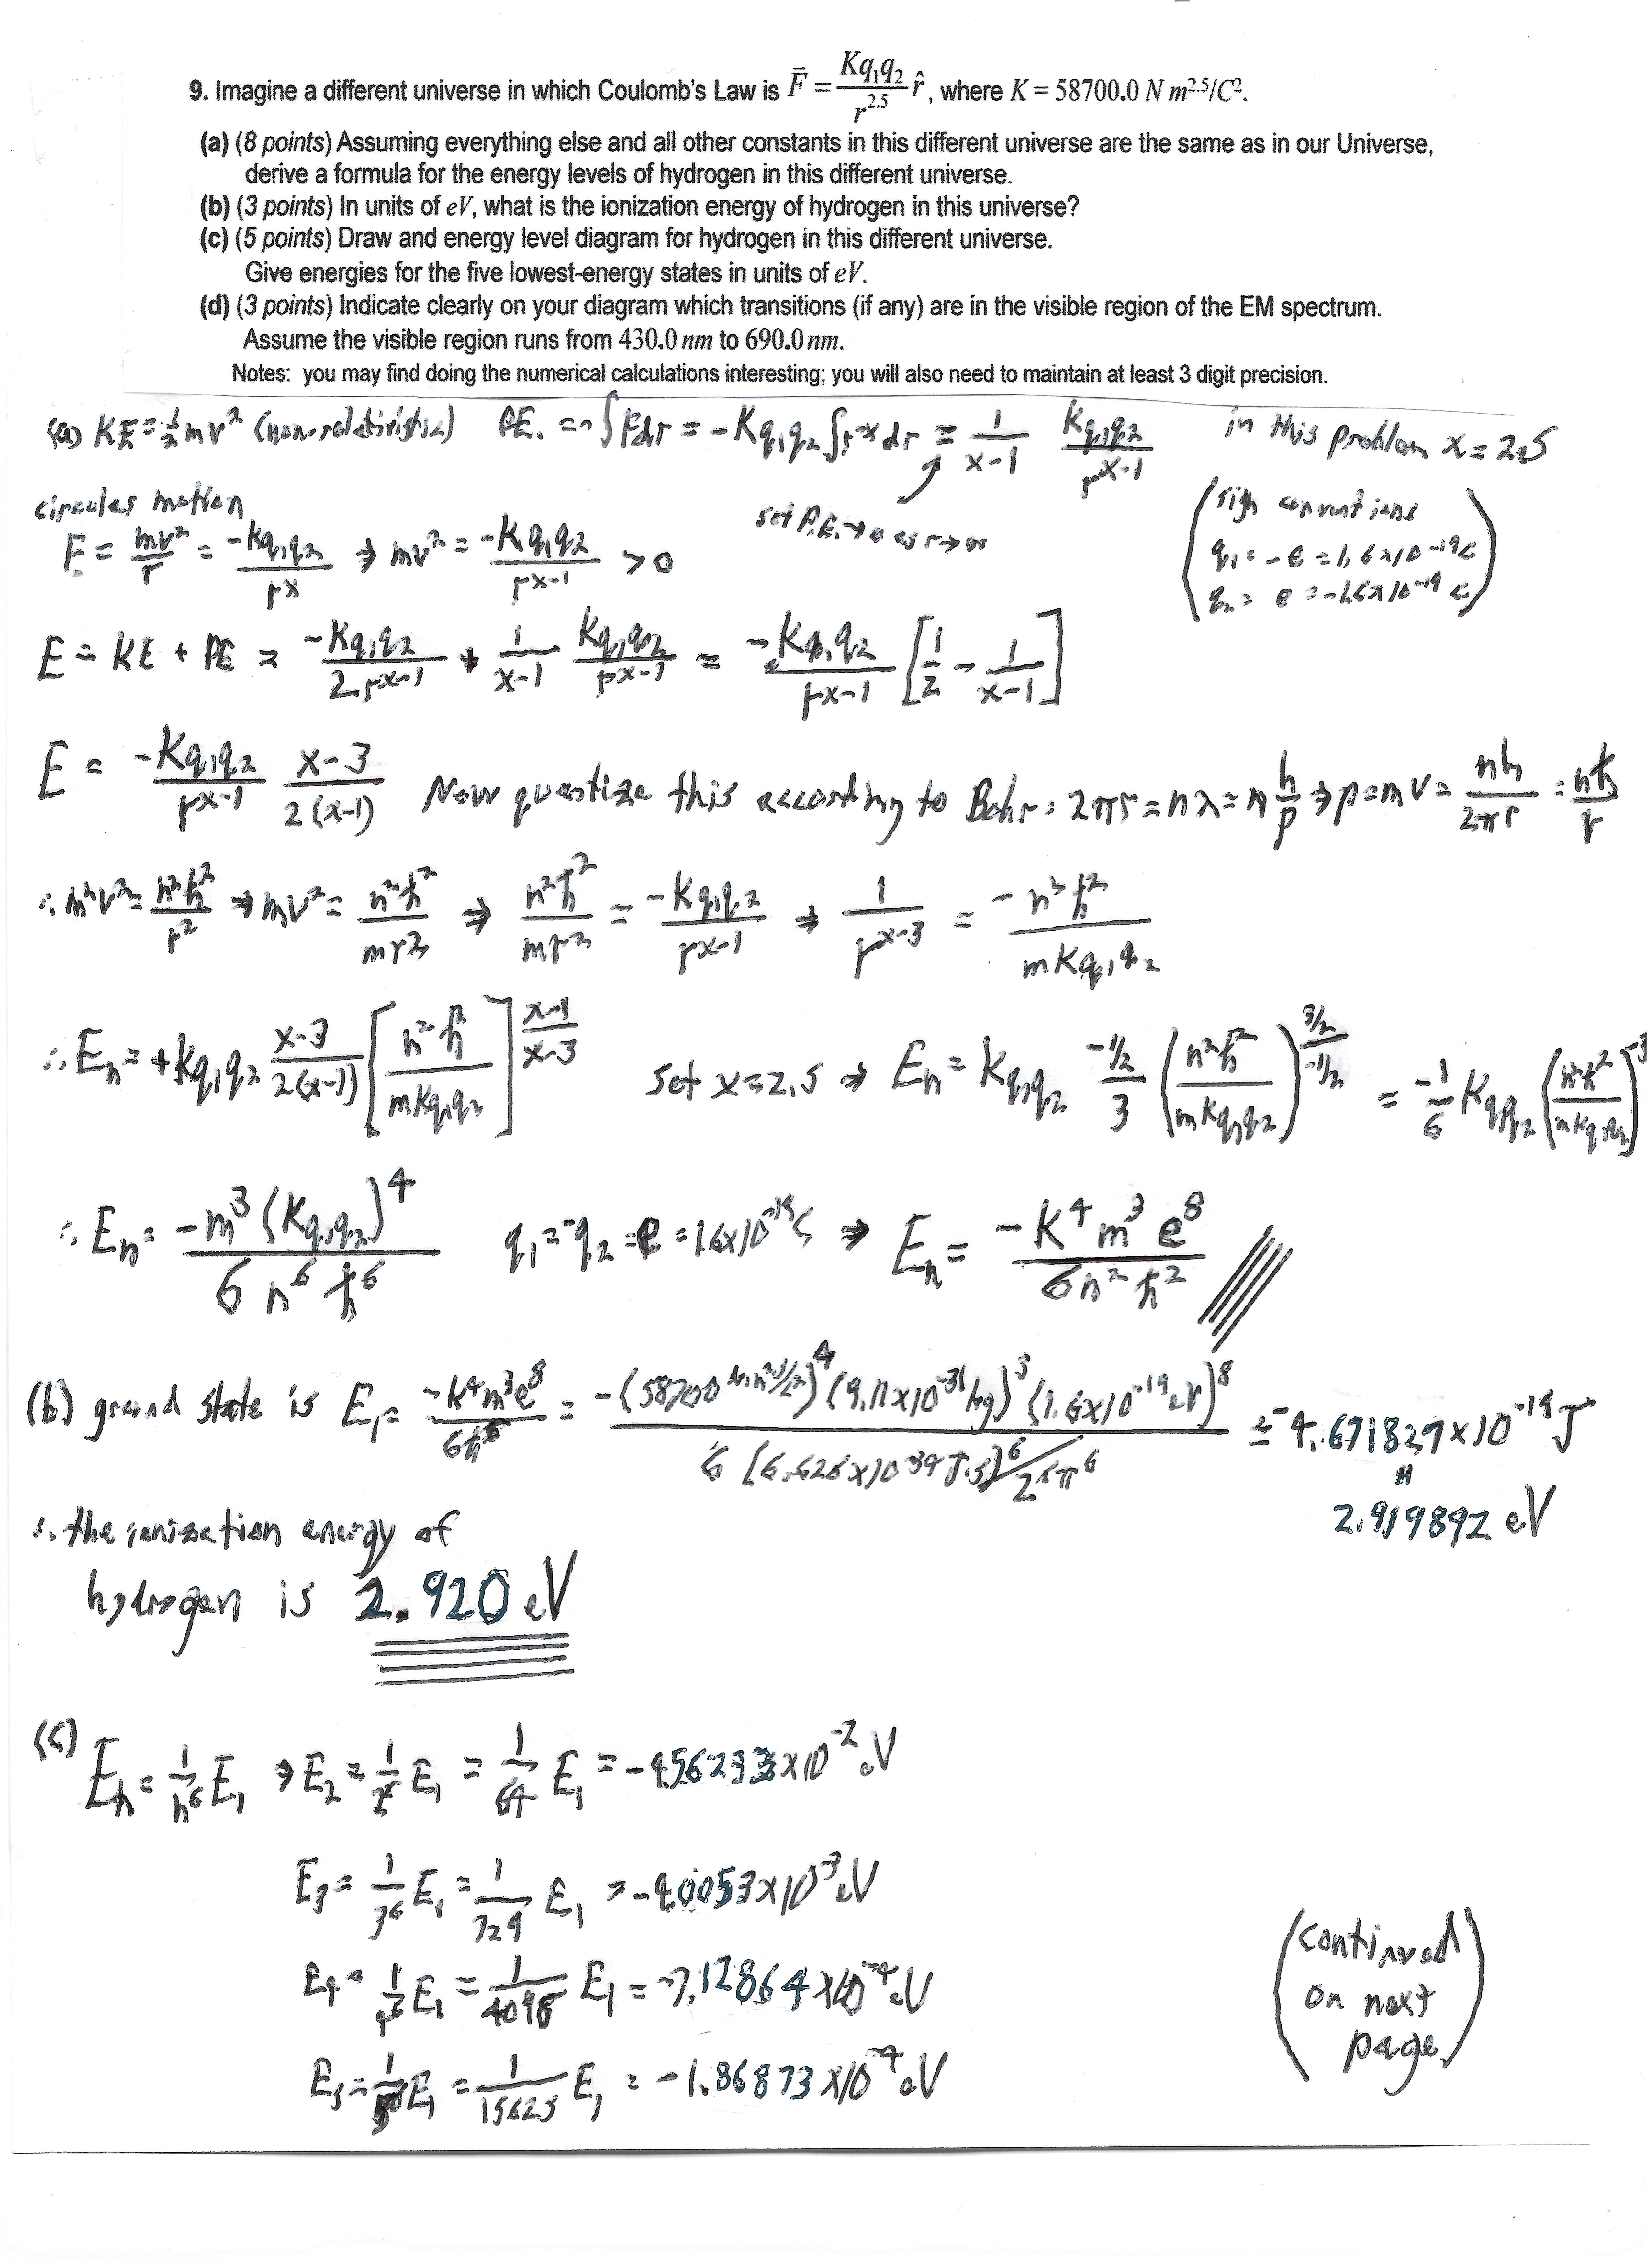 9. Imagine a different universe in which Coulomb's Law is F⃗ = Kq₁q₂/r^2.5 r̂, where K = 58700.0 N m^2.5/C².
(a) (8 points) Assuming everything else and all other constants in this different universe are the same as in our Universe,
derive a formula for the energy levels of hydrogen in this different universe.
(b) (3 points) In units of eV, what is the ionization energy of hydrogen in this universe?
(c) (5 points) Draw and energy level diagram for hydrogen in this different universe.
Give energies for the five lowest-energy states in units of eV.
(d) (3 points) Indicate clearly on your diagram which transitions (if any) are in the visible region of the EM spectrum.
Assume the visible region runs from 430.0 nm to 690.0 nm.
Notes: you may find doing the numerical calculations interesting; you will also need to maintain at least 3 digit precision.
(a) KE = ½mv² (non-relativistic) P.E. = -∫Fdr = -Kq₁q₂∫r^-x dr = 1/(x-1) Kq₁q₂/r^(x-1) in this problem x = 2.5
set P.E. → 0 as r → ∞
(sign conventions
q₁ = -e = 1.6x10^-19 C
q₂ = e = -1.6x10^-19 C)
circular motion
F = mv²/r = -Kq₁q₂/r^x ⇒ mv² = -Kq₁q₂/r^(x-1) > 0
E = KE + PE = -Kq₁q₂/2r^(x-1) + 1/(x-1) Kq₁q₂/r^(x-1) = -Kq₁q₂/r^(x-1) [1/2 - 1/(x-1)]
E = -Kq₁q₂/r^(x-1) (x-3)/2(x-1) Now quantize this according to Bohr: 2πr = nλ = n h/p ⇒ p = mv = nh/2πr = nħ/r
∴ m²v² = n²ħ²/r² ⇒ mv² = n²ħ²/mr² ⇒ n²ħ²/mr² = -Kq₁q₂/r^(x-1) ⇒ 1/r^(x-3) = -n²ħ²/mKq₁q₂
∴ Eₙ = +Kq₁q₂ (x-3)/2(x-1) [n²ħ²/mKq₁q₂]^((x-1)/(x-3)) set x = 2.5 ⇒ Eₙ = Kq₁q₂ (-1/2)/3 (n²ħ²/mKq₁q₂)^((3/2)/(-1/2)) = -1/6 Kq₁q₂ (n²ħ²/mKq₁q₂)^-3
∴ Eₙ = -m³(Kq₁q₂)⁴/6n⁶ħ⁶ q₁ = -q₂ = e = 1.6x10^-19 C ⇒ Eₙ = -K⁴m³e⁸/6n²ħ²
(b) ground state is E₁ = -K⁴m³e⁸/6ħ⁶ = -(58700 N·m^2.5/C²)⁴ (9.11x10^-31 kg)³ (1.6x10^-19 eV)⁸/6 (6.626x10^-34 J.s)⁶/2⁶π⁶ = -4.671827x10^-19 J
"
2.919892 eV
∴ the ionization energy of
hydrogen is 2.920 eV
(c) Eₙ = 1/n⁶ E₁ ⇒ E₂ = 1/2⁶ E₁ = 1/64 E₁ = -4.56233x10^-2 eV
E₃ = 1/3⁶ E₁ = 1/729 E₁ = -4.0053x10^-3 eV
E₄ = 1/4⁶ E₁ = 1/4096 E₁ = -7.12864x10^-4 eV
E₅ = 1/5⁶ E₁ = 1/15625 E₁ = -1.86873x10^-4 eV
(continued
on next
page)